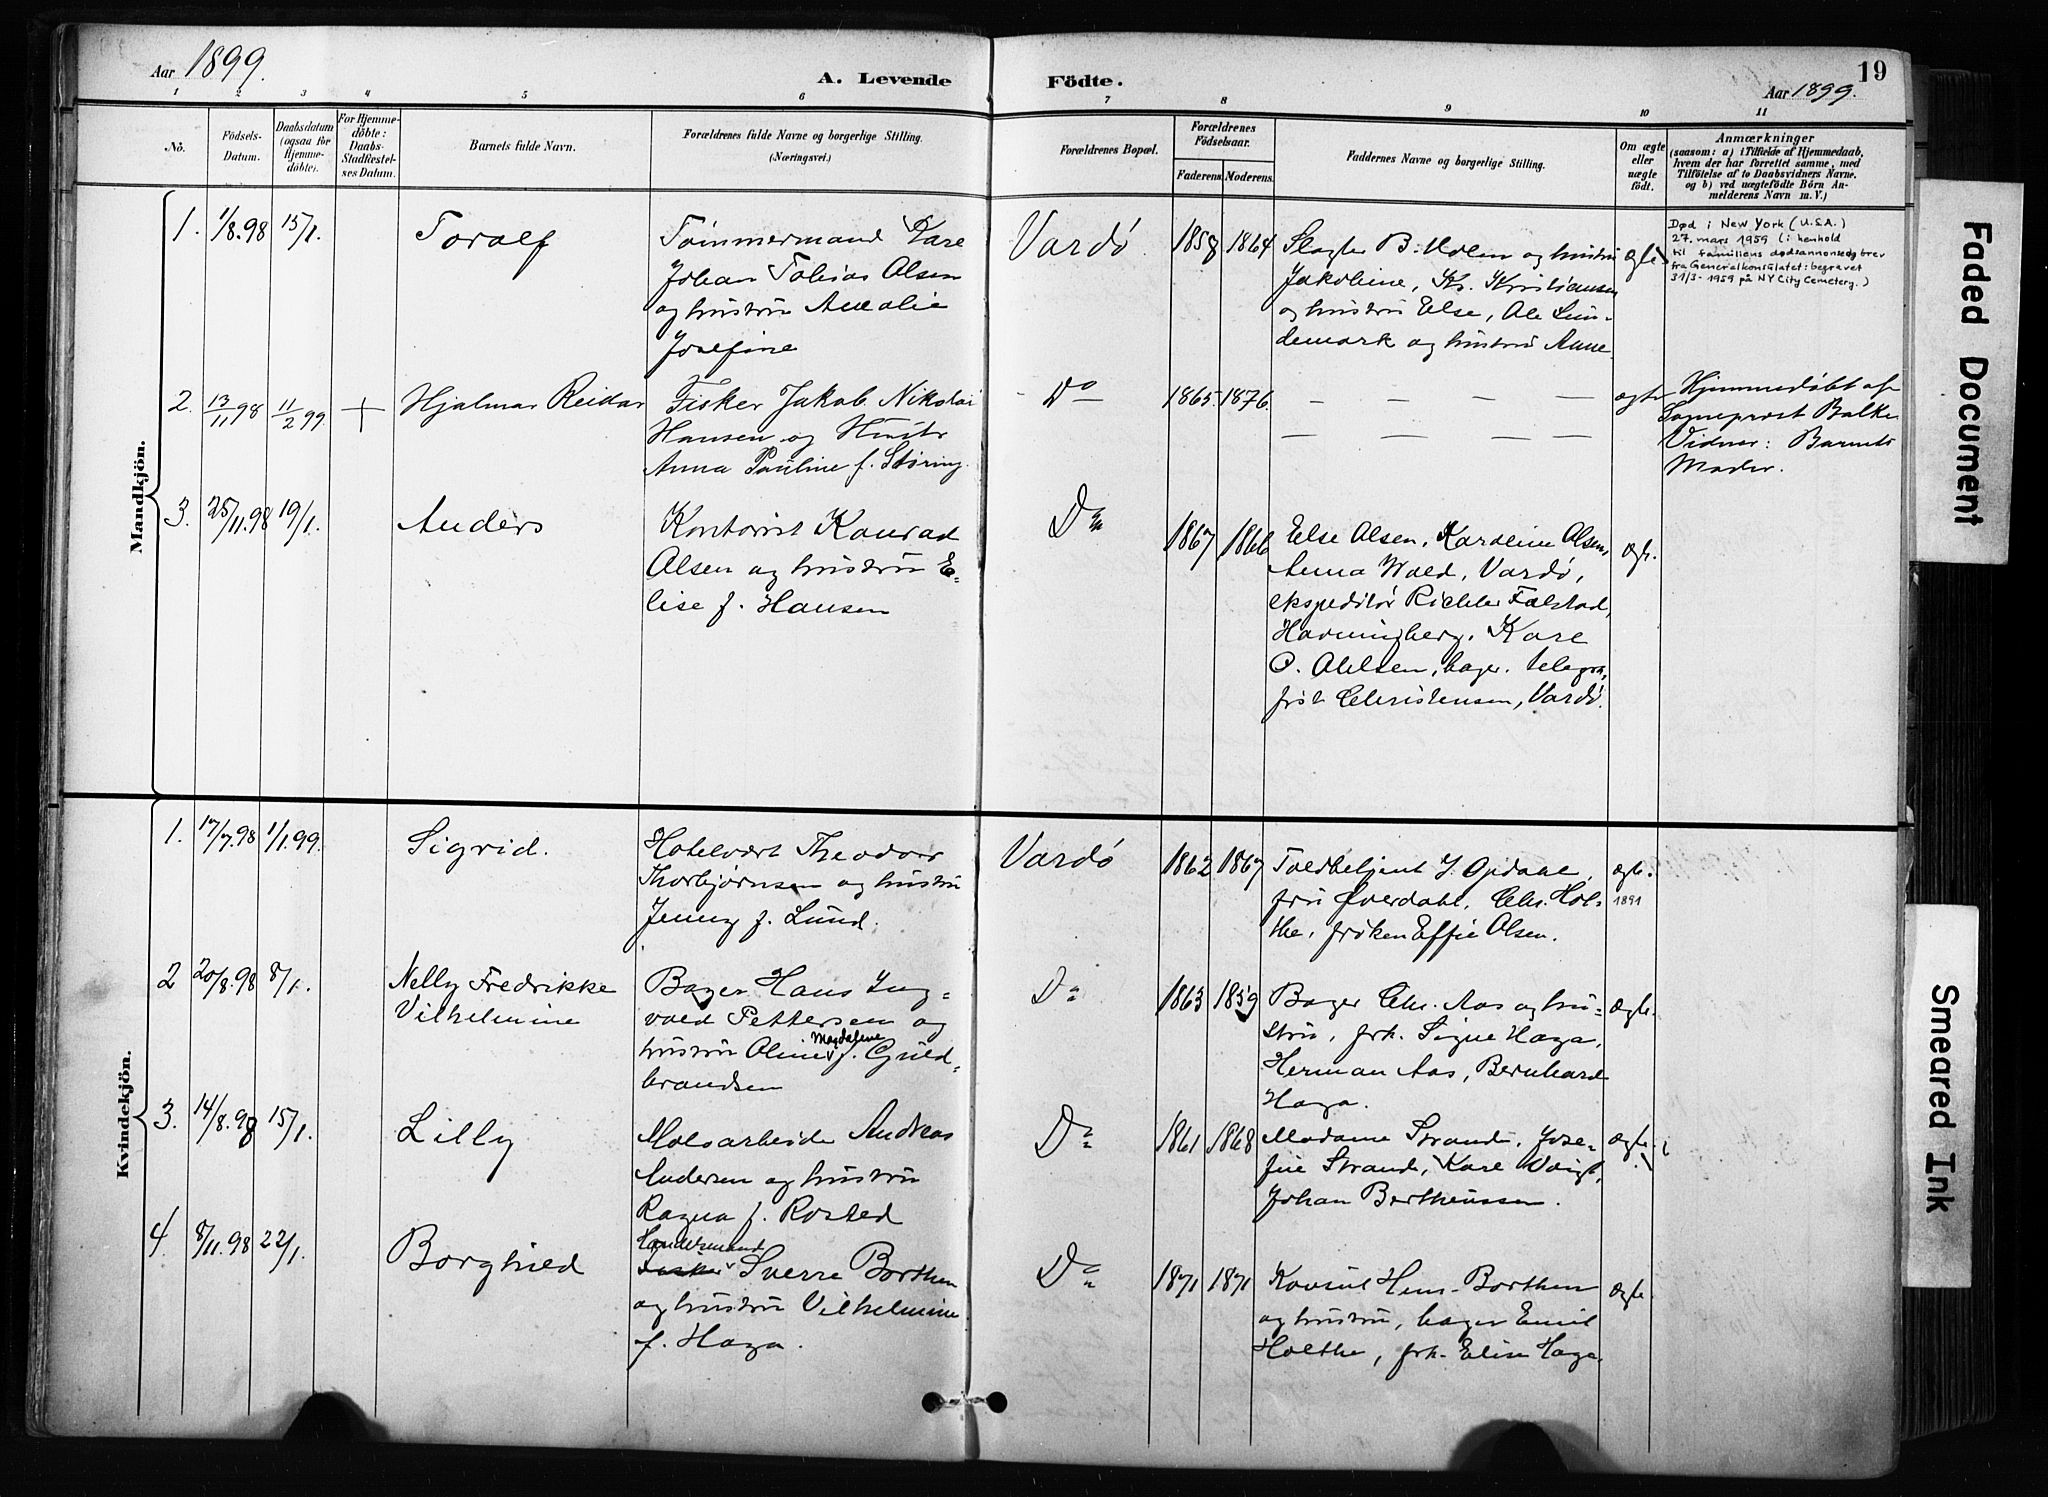 Aar 1899.
A. Levende Födte.
Aar 1899.
19
1 2 3 4 5 6 7 8 9 10 11
Nô.
Födsels-
Datum.
Daabsdatum
(ogsaa for
Hjemme-
döbte).
For Hjemme-
döbte:
Daabs-
Stadfæstel-
ses Datum.
Barnets fulde Navn.
Forældrenes fulde Navne og borgerlige Stilling.
(Næringsvei.)
Forældrenes Bopæl.
Forældrenes
Födselsaar.
Faderens. Moderens.
Faddernes Navne og borgerlige Stilling.
Om ægte
eller
uægte
födt.
Anmærkninger
(saasom: a) i Tilfælde af Hjemmedaab,
hvem der har forrettet samme, med
Tilföielse af to Daabsvidners Navne.
og b) ved uægtefödte Börn An-
melderens Navn m. V.)
Mandkjön.
1. 1/8.98 15/1. Toralf
Tömmermand Kare
Johan Tobias Olsen
og hustru Amalie
Josefine
Vardö 1858 1864
Slagter B. Holen og hustru
Jakobine, Kr. Kristiansen
og hustru Else, Ole Lun-
demark og hustru Anne.
ægte
Død i New York (U.S.A.)
27. mars 1959 (i henhold
til familiens dødsannonse og brev
fra Generalkonsulatet: begravet
31/3-1959 på NY City Cemetery.)
2. 13/11 98 11/2 99. + Hjalmar Reidar
Fisker Jakob Nikolai
Hansen og Hustr
Anna Pauline f. Störing.
Do 1865. 1876.
— — — —
— — — —
ægte
Hjemmedöbt af
Sogneprost Balke
Vidner: Barnets
Moder.
3. 25/11.98 19/1. Anders
Kontorist Konrad
Olsen og hustru E-
lise f. Hansen
Do 1867 1866
Else Olsen, Karoline Olsen,
Anna Wold, Vardö,
ekspeditör Richter Falstad,
Havningberg, Kare
O. Olelsen, bager. telegra-
fist Christensen, Vardö.
ægte.
Kvindekjön.
1. 17/7.98 1/1.99. Sigrid.
Hotelvært Theodor
Thorbjørnsen og hustru
Jenny f. Lund.
Vardö 1862 1867
Toldbetjent J. Opdahl,
fru Överdahl, Chr. Hol-
the, fröken Effie Olsen.
ægte.
1891
2 20/8.98 8/1. Nelly Fredrikke
Vilhelmine
Bager Hans Ing-
vald Pettersen og
hustru Oline Magdalene f. Guld-
brandsen
Do 1863 1859
Bager Chr. Aas og hu-
stru, frk. Signe Haga,
Herman Aas, Bernhard
Haga.
ægte.
3. 14/8.98 15/1. Lilly
Moloarbeide Andreas
Andersen og hustru
Ragna f. Rosted
Do 1861 1868
Madame Strand, Jose-
fine Strand, Kare Voigt,
Johan Bertheussen.
ægte.
4. 8/11.98 22/1. Borghild
Handelsmand
Fisker Sverre Borthen
og hustru Vilhelmine
f. Haga.
Do 1871 1871
Konsul Hens. Borthen
og hustru, bager Emil
Holthe, frk. Elise Haga.
ægte.
Faded Document
Smeared Ink